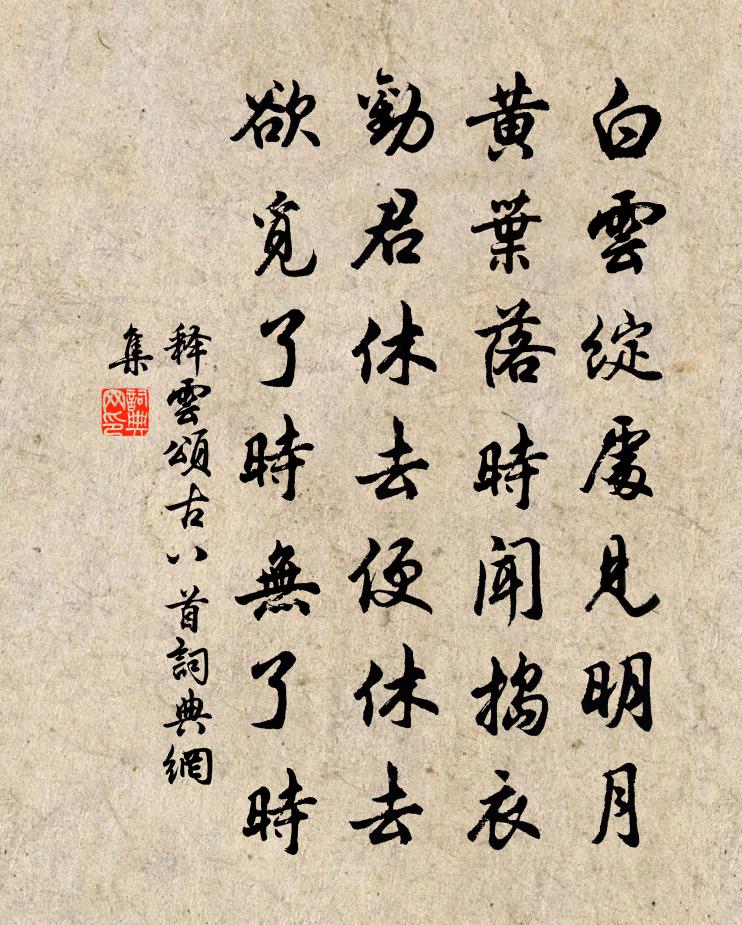 白雲綻處見明月
黃葉落時聞搗衣
勸君休去便休去
欲覓了時無了時
释雲頌古八首詞典網
集
詞典網印